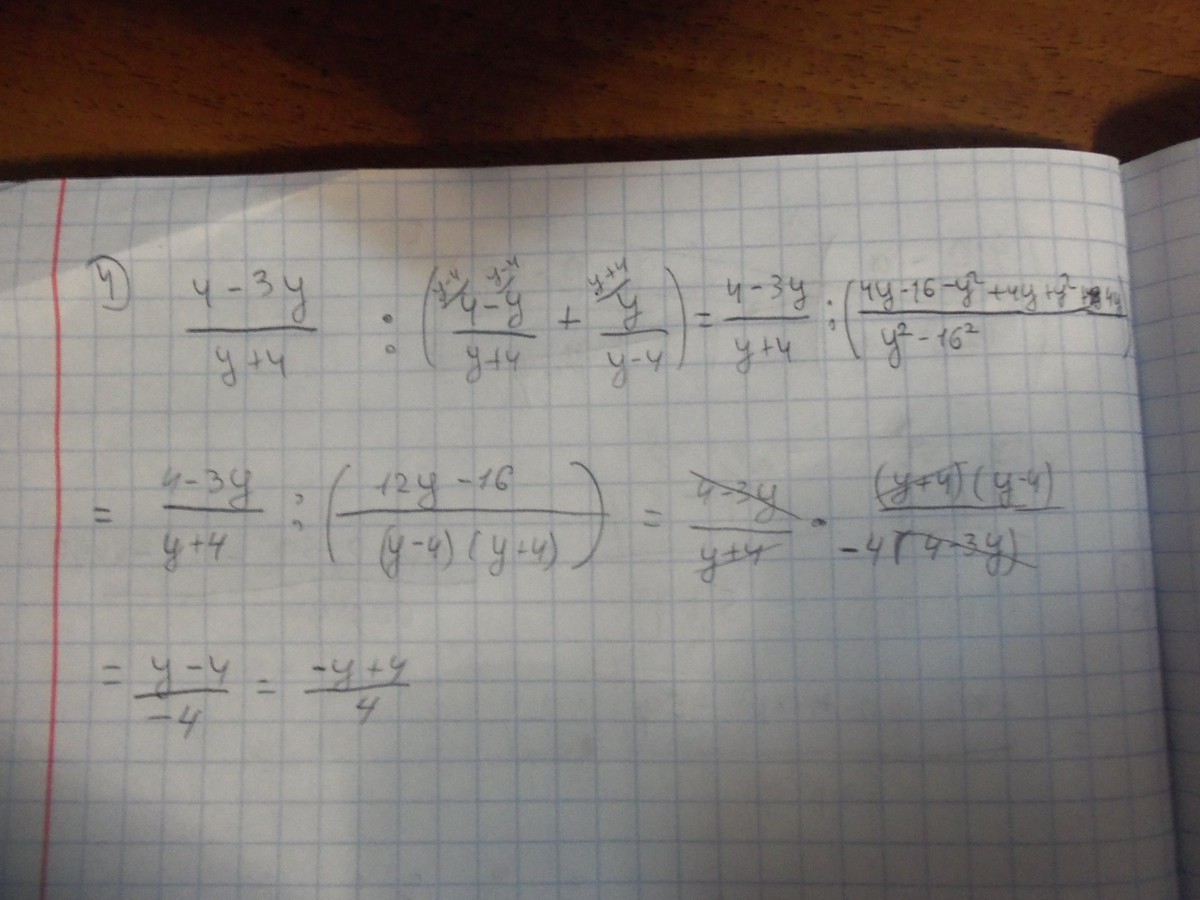 4) (4-3y)/(y+4) : ((4-y)/(y+4) + y/(y-4)) = (4-3y)/(y+4) : ((4y-16-y²+4y+y²+4y)/(y²-16²))
y-4 y-4 y+4
= (4-3y)/(y+4) : ((12y-16)/((y-4)(y+4))) = (4-3y)/(y+4) · ((y+4)(y-4))/(-4(4-3y))
= (y-4)/(-4) = (-y+4)/4